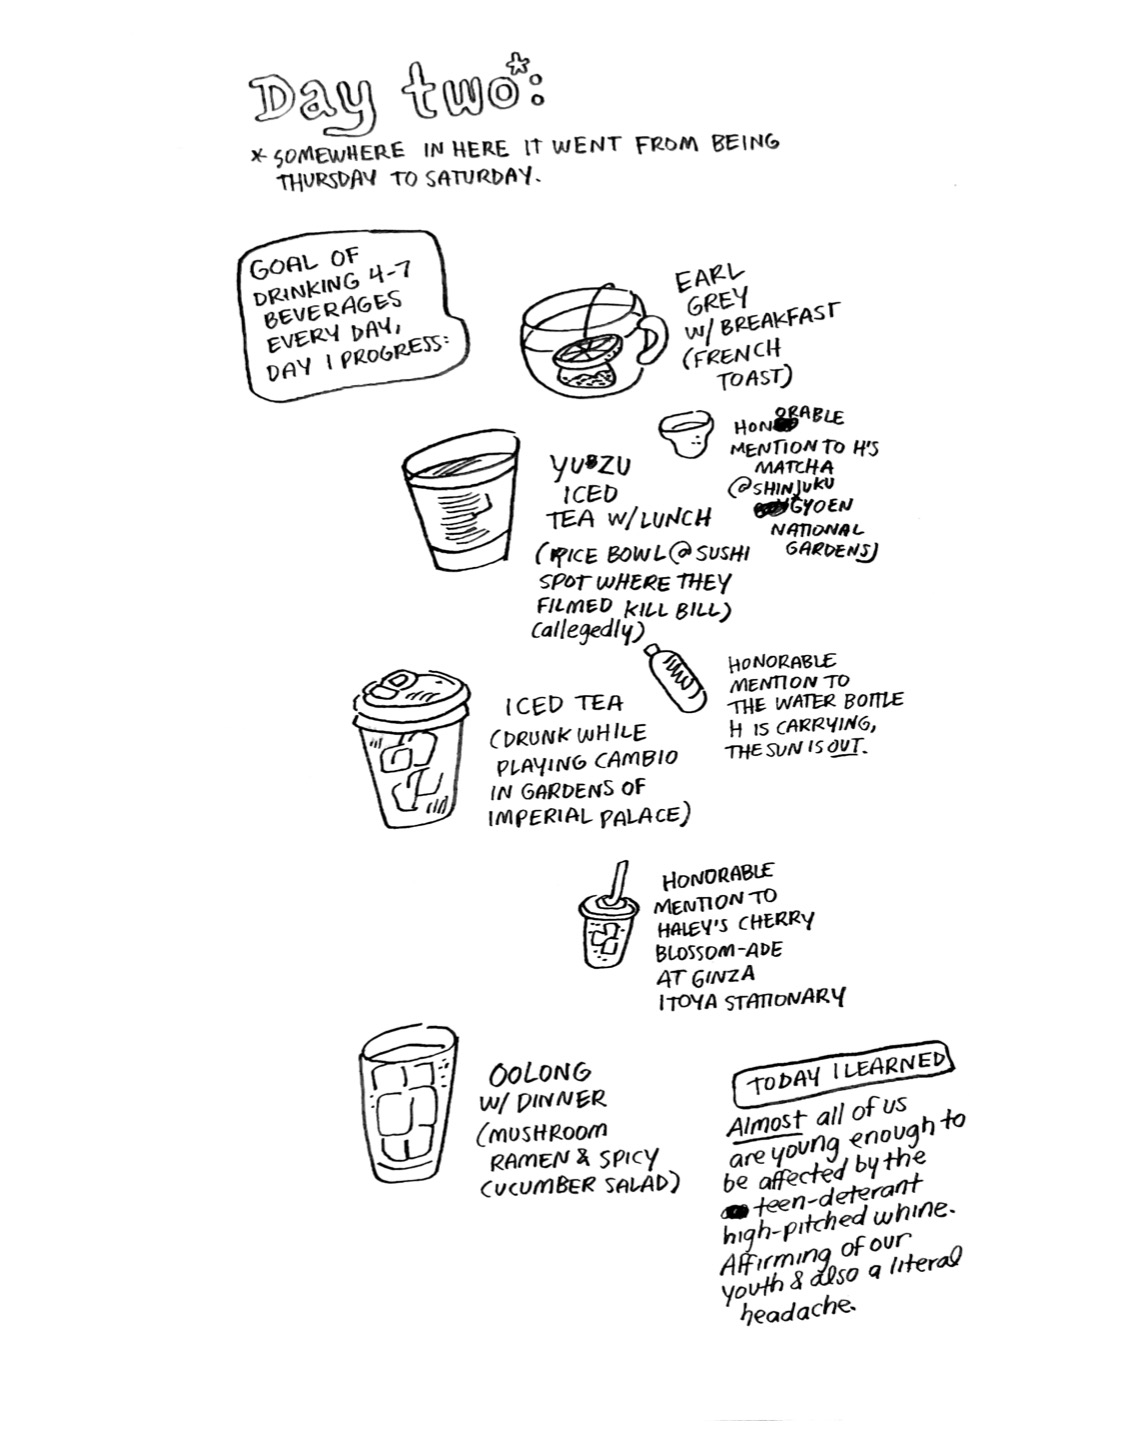 Day two*:
* SOMEWHERE IN HERE IT WENT FROM BEING
THURSDAY TO SATURDAY.
GOAL OF
DRINKING 4-7
BEVERAGES
EVERY DAY,
DAY 1 PROGRESS:
EARL
GREY
W/ BREAKFAST
(FRENCH
TOAST)
HONORABLE
MENTION TO H'S
MATCHA
(@SHINJUKU
GYOEN
NATIONAL
GARDENS)
YUZU
ICED
TEA W/ LUNCH
(RICE BOWL @ SUSHI
SPOT WHERE THEY
FILMED KILL BILL)
(allegedly)
HONORABLE
MENTION TO
THE WATER BOTTLE
H IS CARRYING,
THE SUN IS OUT.
ICED TEA
(DRUNK WHILE
PLAYING CAMBIO
IN GARDENS OF
IMPERIAL PALACE)
HONORABLE
MENTION TO
HALEY'S CHERRY
BLOSSOM-ADE
AT GINZA
ITOYA STATIONARY
OOLONG
W/ DINNER
(MUSHROOM
RAMEN & SPICY
CUCUMBER SALAD)
TODAY I LEARNED
Almost all of us
are young enough to
be affected by the
teen-deterant
high-pitched whine.
Affirming of our
youth & also a literal
headache.